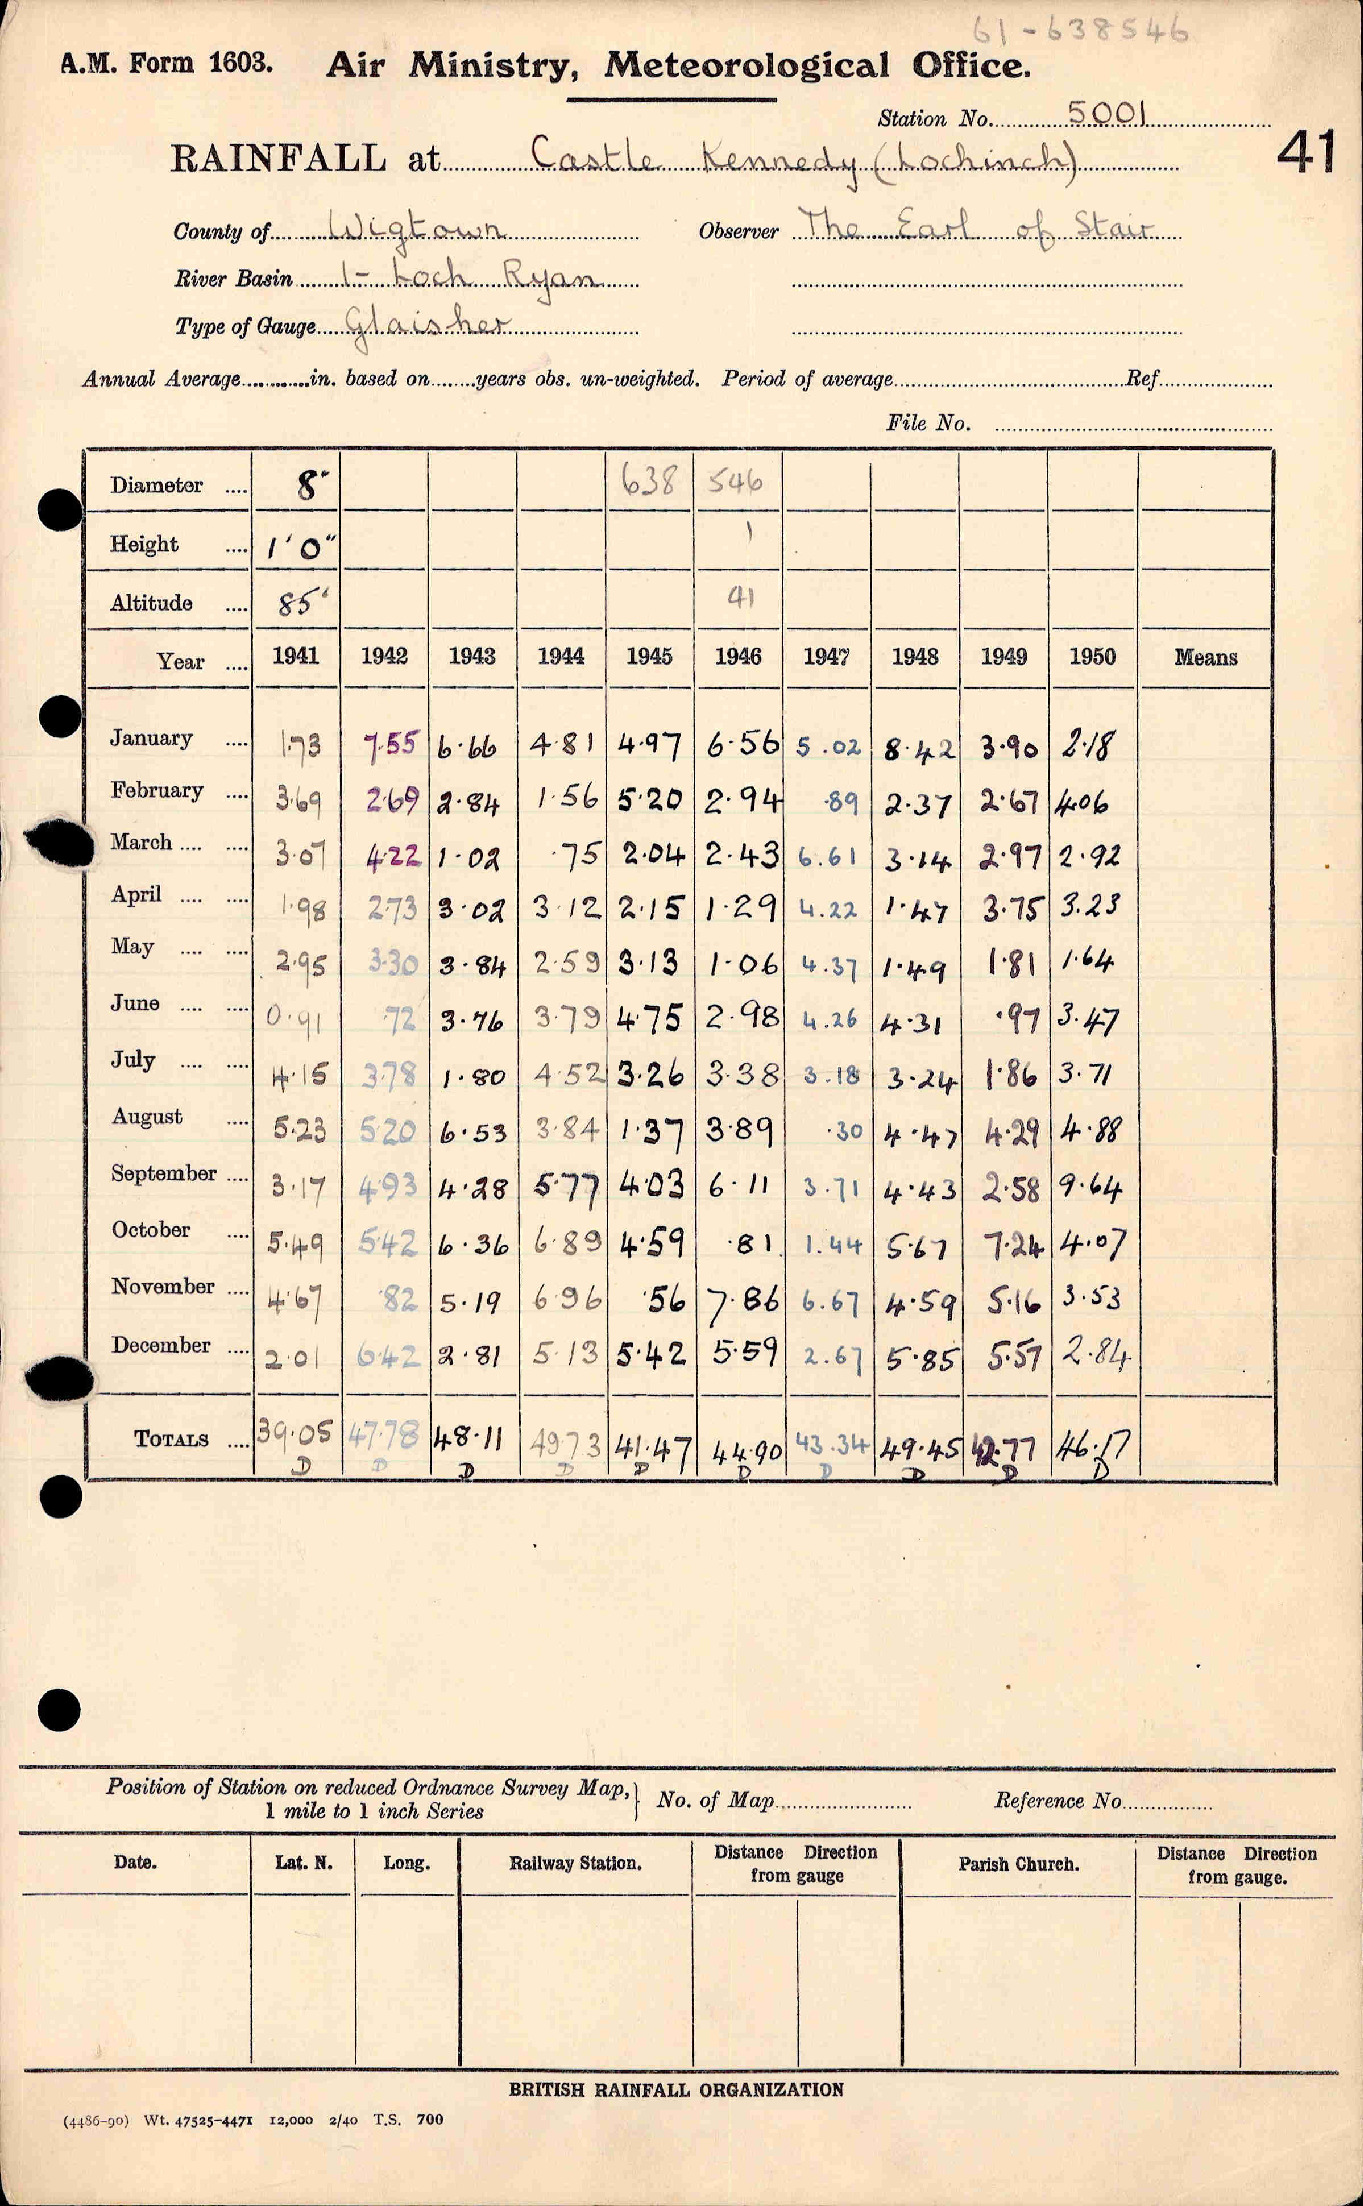 61-638546
A.M. Form 1603. Air Ministry, Meteorological Office.
Station No. 5001
41
RAINFALL at Castle Kennedy (Lochinch)
County of Wigtown Observer The Earl of Stair
River Basin 1- Loch Ryan
Type of Gauge Glaisher
Annual Average in. based on years obs. un-weighted. Period of average Ref.
File No.
Diameter 8" 638 546
Height 1' 0" 1
Altitude 85' 41
Year 1941 1942 1943 1944 1945 1946 1947 1948 1949 1950 Means
January 1.73 7.55 6.66 4.81 4.97 6.56 5.02 8.42 3.90 2.18
February 3.69 2.69 2.84 1.56 5.20 2.94 .89 2.37 2.67 4.06
March 3.07 4.22 1.02 .75 2.04 2.43 6.61 3.14 2.97 2.92
April 1.98 2.73 3.02 3.12 2.15 1.29 4.22 1.47 3.75 3.23
May 2.95 3.30 3.84 2.59 3.13 1.06 4.37 1.49 1.81 1.64
June 0.91 .72 3.76 3.79 4.75 2.98 4.26 4.31 .97 3.47
July 4.15 3.78 1.80 4.52 3.26 3.38 3.18 3.24 1.86 3.71
August 5.23 5.20 6.53 3.84 1.37 3.89 .30 4.47 4.29 4.88
September 3.17 4.93 4.28 5.77 4.03 6.11 3.71 4.43 2.58 9.64
October 5.49 5.42 6.36 6.89 4.59 .81 1.44 5.67 7.24 4.07
November 4.67 .82 5.19 6.96 .56 7.86 6.67 4.59 5.16 3.53
December 2.01 6.42 2.81 5.13 5.42 5.59 2.67 5.85 5.57 2.84
TOTALS 39.05 47.78 48.11 49.73 41.47 44.90 43.34 49.45 42.77 46.17
D D D D D D D D D D
Position of Station on reduced Ordnance Survey Map, 1 mile to 1 inch Series } No. of Map Reference No.
Date. Lat. N. Long. Railway Station. Distance Direction from gauge Parish Church. Distance Direction from gauge.
BRITISH RAINFALL ORGANIZATION
(4486-90) Wt. 47525-4471 12,000 2/40 T.S. 700